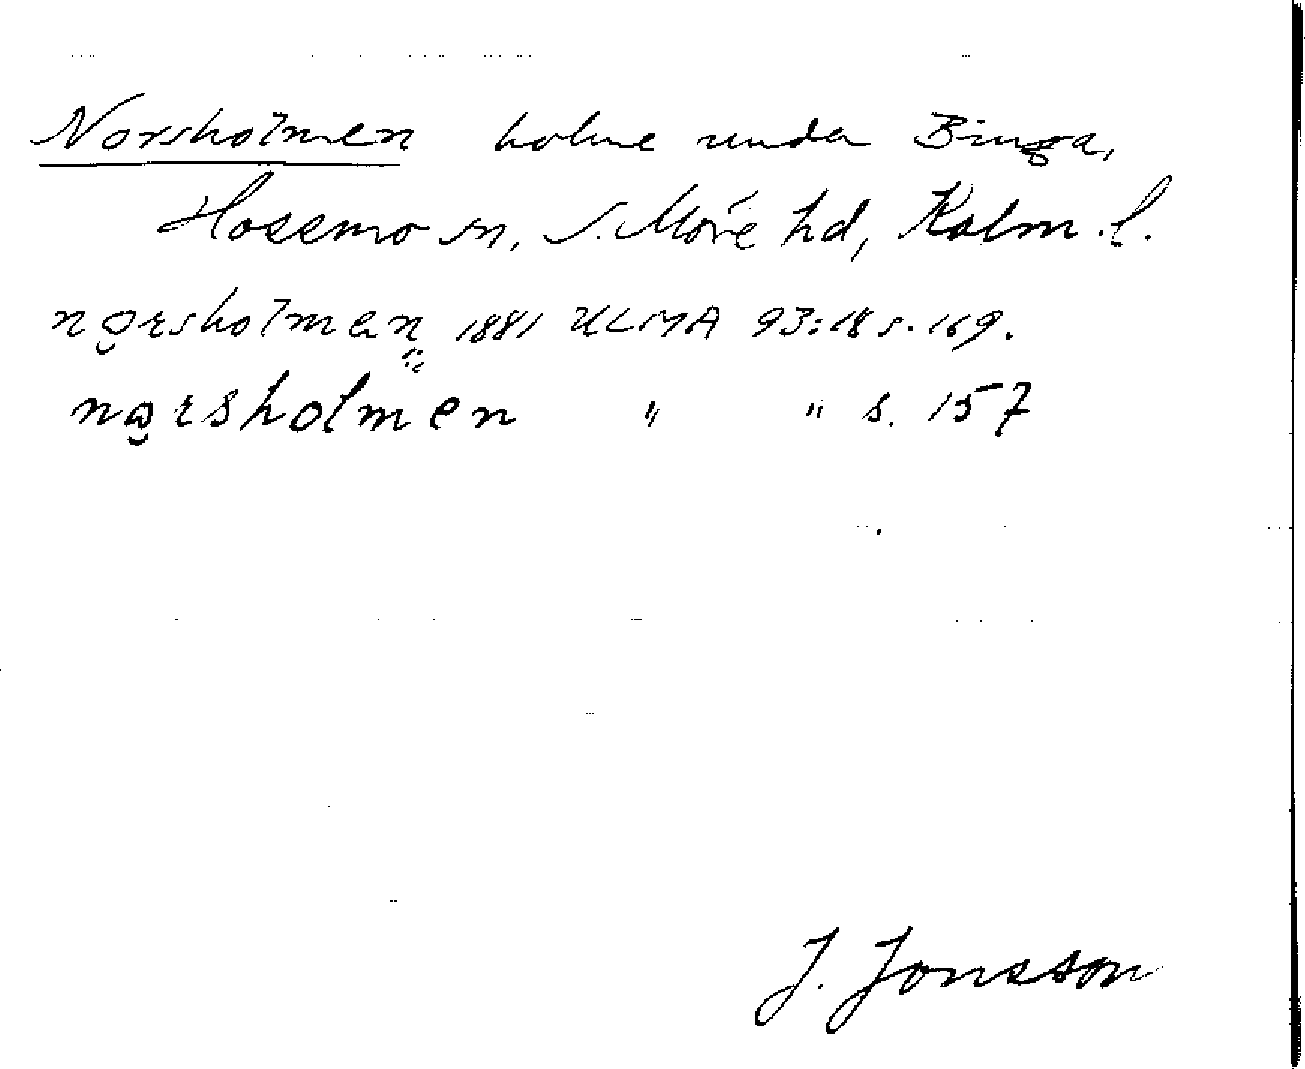 Norsholmen holme under Binga,
Hossmo sn, S. Möre hd, Kalm. l.
nǫrsholmen 1881 ULMA 93:18 s. 169.
nǫrsholmen " " s. 157
J. Jonsson